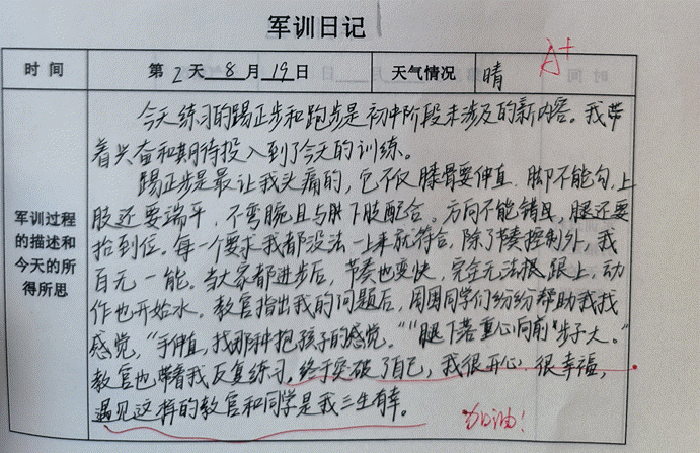 军训日记
时 间 第 2 天 8 月 19 日 天气情况 晴 A+
今天练习的踢正步和跑步是初中阶段未涉及的新内容。我带
着兴奋和期待投入到了今天的训练。
踢正步是最让我头痛的,它不仅膝骨要伸直、脚不能勾,上
肢还要端平,不弯腕且与下肢配合。方向不能错且,腿还要
军训过程的描述和今天的所得所思
抬到位。每一个要求我都没法一上来就符合,除了节奏控制外,我
百无一能。当大家都进步后,节奏也变快,完全无法跟上,动
作也开始水。教官指出我的问题后,周围同学们纷纷帮助我找
感觉,“手伸直,找那种抱孩子的感觉。”“腿下落重心向前步子大。”
教官也带着我反复练习,终于突破了自己,我很开心、很幸福,
遇见这样的教官和同学是我三生有幸。
加油!